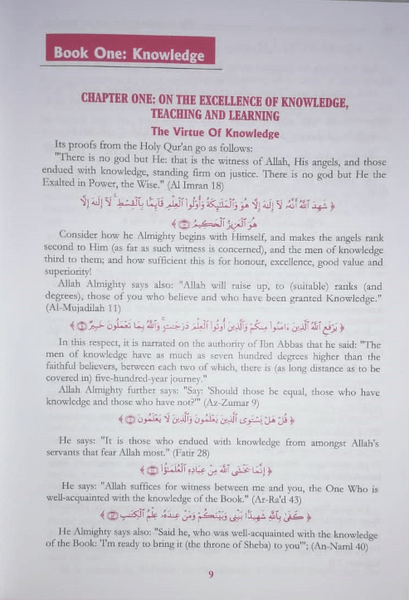 Book One: Knowledge
CHAPTER ONE: ON THE EXCELLENCE OF KNOWLEDGE,
TEACHING AND LEARNING
The Virtue Of Knowledge
Its proofs from the Holy Qur'an go as follows:
"There is no god but He: that is the witness of Allah, His angels, and those
endued with knowledge, standing firm on justice. There is no god but He the
Exalted in Power, the Wise." (Al Imran 18)
﴿ شَهِدَ اللَّهُ أَنَّهُ لَا إِلَٰهَ إِلَّا هُوَ وَالْمَلَائِكَةُ وَأُولُوا الْعِلْمِ قَائِمًا بِالْقِسْطِ ۚ لَا إِلَٰهَ إِلَّا
هُوَ الْعَزِيزُ الْحَكِيمُ ﴾
Consider how he Almighty begins with Himself, and makes the angels rank
second to Him (as far as such witness is concerned), and the men of knowledge
third to them; and how sufficient this is for honour, excellence, good value and
superiority!
Allah Almighty says also: "Allah will raise up, to (suitable) ranks (and
degrees), those of you who believe and who have been granted Knowledge."
(Al-Mujadilah 11)
﴿ يَرْفَعِ اللَّهُ الَّذِينَ ءَامَنُوا مِنكُمْ وَالَّذِينَ أُوتُوا الْعِلْمَ دَرَجَاتٍ ۚ وَاللَّهُ بِمَا تَعْمَلُونَ خَبِيرٌ ﴾
In this respect, it is narrated on the authority of Ibn Abbas that he said: "The
men of knowledge have as much as seven hundred degrees higher than the
faithful believers, between each two of which, there is (as long distance as to be
covered in) five-hundred-year journey."
Allah Almighty further says: "Say: 'Should those be equal, those who have
knowledge and those who have not?'" (Az-Zumar 9)
﴿ قُلْ هَلْ يَسْتَوِى الَّذِينَ يَعْلَمُونَ وَالَّذِينَ لَا يَعْلَمُونَ ﴾
He says: "It is those who endued with knowledge from amongst Allah's
servants that fear Allah most." (Fatir 28)
﴿ إِنَّمَا يَخْشَى اللَّهَ مِنْ عِبَادِهِ الْعُلَمَٰٓؤُا ﴾
He says: "Allah suffices for witness between me and you, the One Who is
well-acquainted with the knowledge of the Book." (Ar-Ra'd 43)
﴿ كَفَىٰ بِاللَّهِ شَهِيدًا بَيْنِى وَبَيْنَكُمْ وَمَنْ عِندَهُ عِلْمُ الْكِتَٰبِ ﴾
He Almighty also says: "Said he, who was well-acquainted with the knowledge
of the Book: 'I'm ready to bring it (the throne of Sheba) to you'"; (An-Naml 40)
9